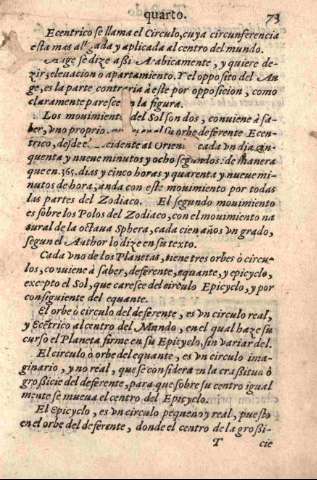 quarto. 73
Ecentrico se llama el Circulo, cuya circunferencia
esta mas allegada y aplicada al centro del mundo.
Auge se dize aßi Arabicamente, y quiere de-
zir, eleuacion o apartamiento. Y el opposito del Au
ge, es la parte contraria à este por opposicion, como
claramente paresce en la figura.
Los mouimientos del Sol son dos, conuiene à sa
ber, vno proprio su orbe deferente Ecen-
trico, desde cidente al Orien cada vn dia cin-
quenta y nueue minutos y ocho segundos: de manera
que en .365. dias y cinco horas y quarenta y nueue mi-
nutos de hora, anda con este mouimiento por todas
las partes del Zodiaco. El segundo mouimiento
es sobre los Polos del Zodiaco, con el mouimiento na
tural de la octaua Sphera, cada cien años vn grado,
segun el Author lo dize en su texto.
Cada vno de los Planetas, tiene tres orbes ò circu-
los, conuiene à saber, deferente, equante, y epicyclo,
excepto el Sol, que caresce del circulo Epicyclo, y por
consiguiente del equante.
El orbe ò circulo del deferente, es vn circulo real,
y Ecẽtrico al centro del Mundo, en el qual haze su
curso el Planeta firme en su Epicyclo, sin variar del.
El circulo ò orbe del equante, es vn circulo ima-
ginario, y no real, que se considera en la crassitud ò
grossicie del deferente, para que sobre su centro igual
mente se mueua el centro del Epicyclo.
El Epicyclo, es vn circulo pequeno y real, puesto
en el orbe del deferente, donde el centro de la großi-
T cie